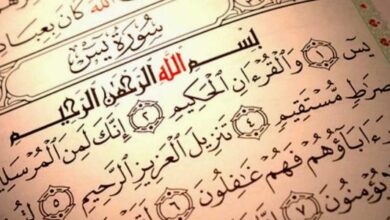 ٱللَّهَ كَانَ بِعِبَادِ
سُورَةُ يسٓ
بِسْمِ ٱللَّهِ ٱلرَّحْمَٰنِ ٱلرَّحِيمِ
يسٓ ١ وَٱلْقُرْءَانِ ٱلْحَكِيمِ ٢ إِنَّكَ لَمِنَ ٱلْمُرْسَلِ
صِرَٰطٍ مُّسْتَقِيمٍ ٤ تَنزِيلَ ٱلْعَزِيزِ ٱلرَّحِيمِ ٥
ءَابَآؤُهُمْ فَهُمْ غَٰفِلُونَ ٦
يُؤْمِنُونَ ٧